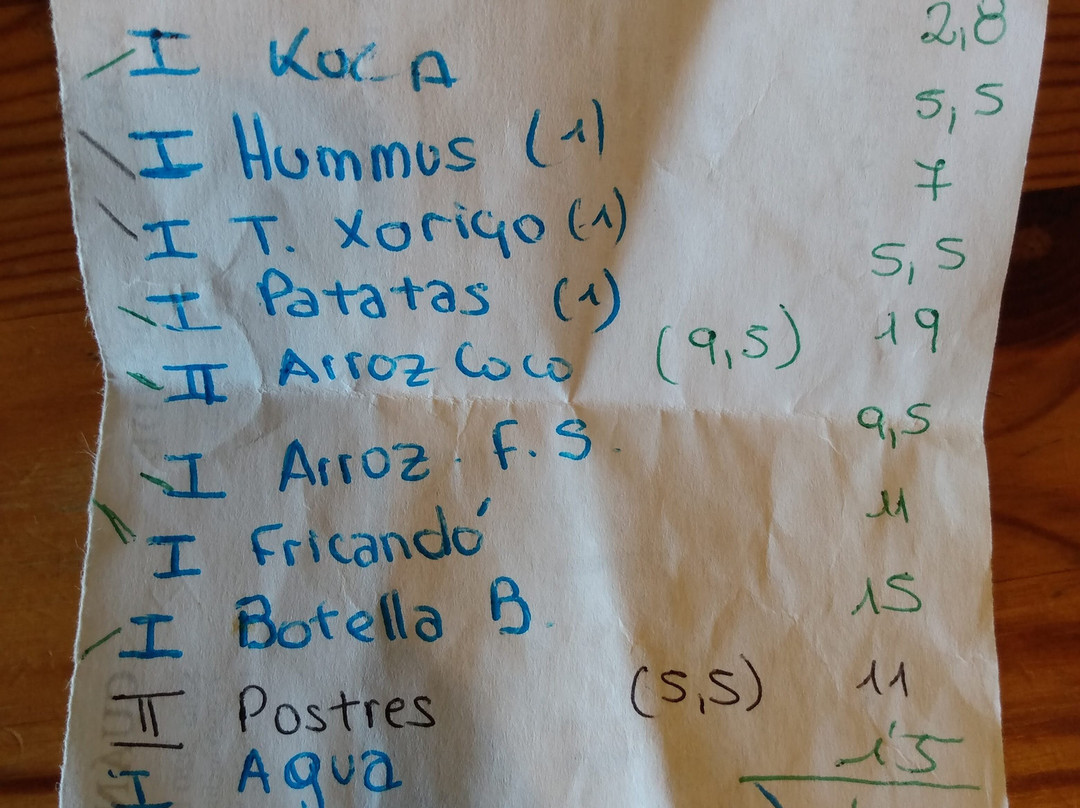 I Koca 2,8
I Hummus (1) 5,5
I T. Xoriço (1) 7
I Patatas (1) 5,5
II Arroz Coco (9,5) 19
I Arroz. F.S. 9,5
I Fricandó 11
I Botella B. 15
II Postres (5,5) 11
I Agua 1'5